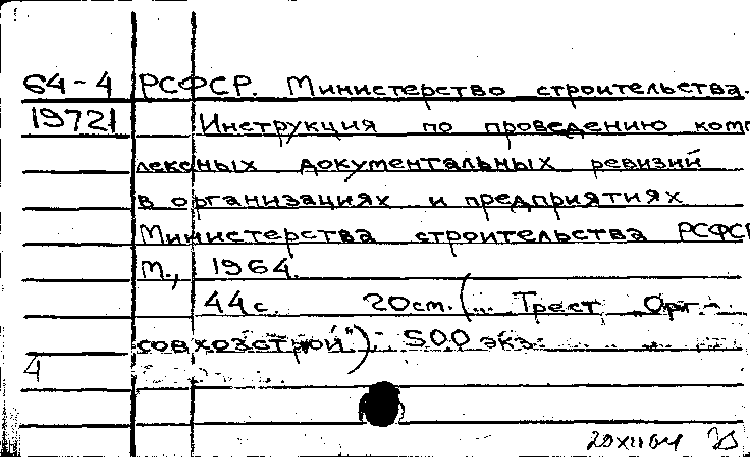 64-4 РСФСР. Министерство строительства.
19721 Инструкция по проведению комп
лексных документальных ревизий
в организациях и предприятиях
Министерства строительства РСФСР
М., 1964.
44с. 20см. (... Трест „Орг-
совхозстрой"). 500 экз.
4